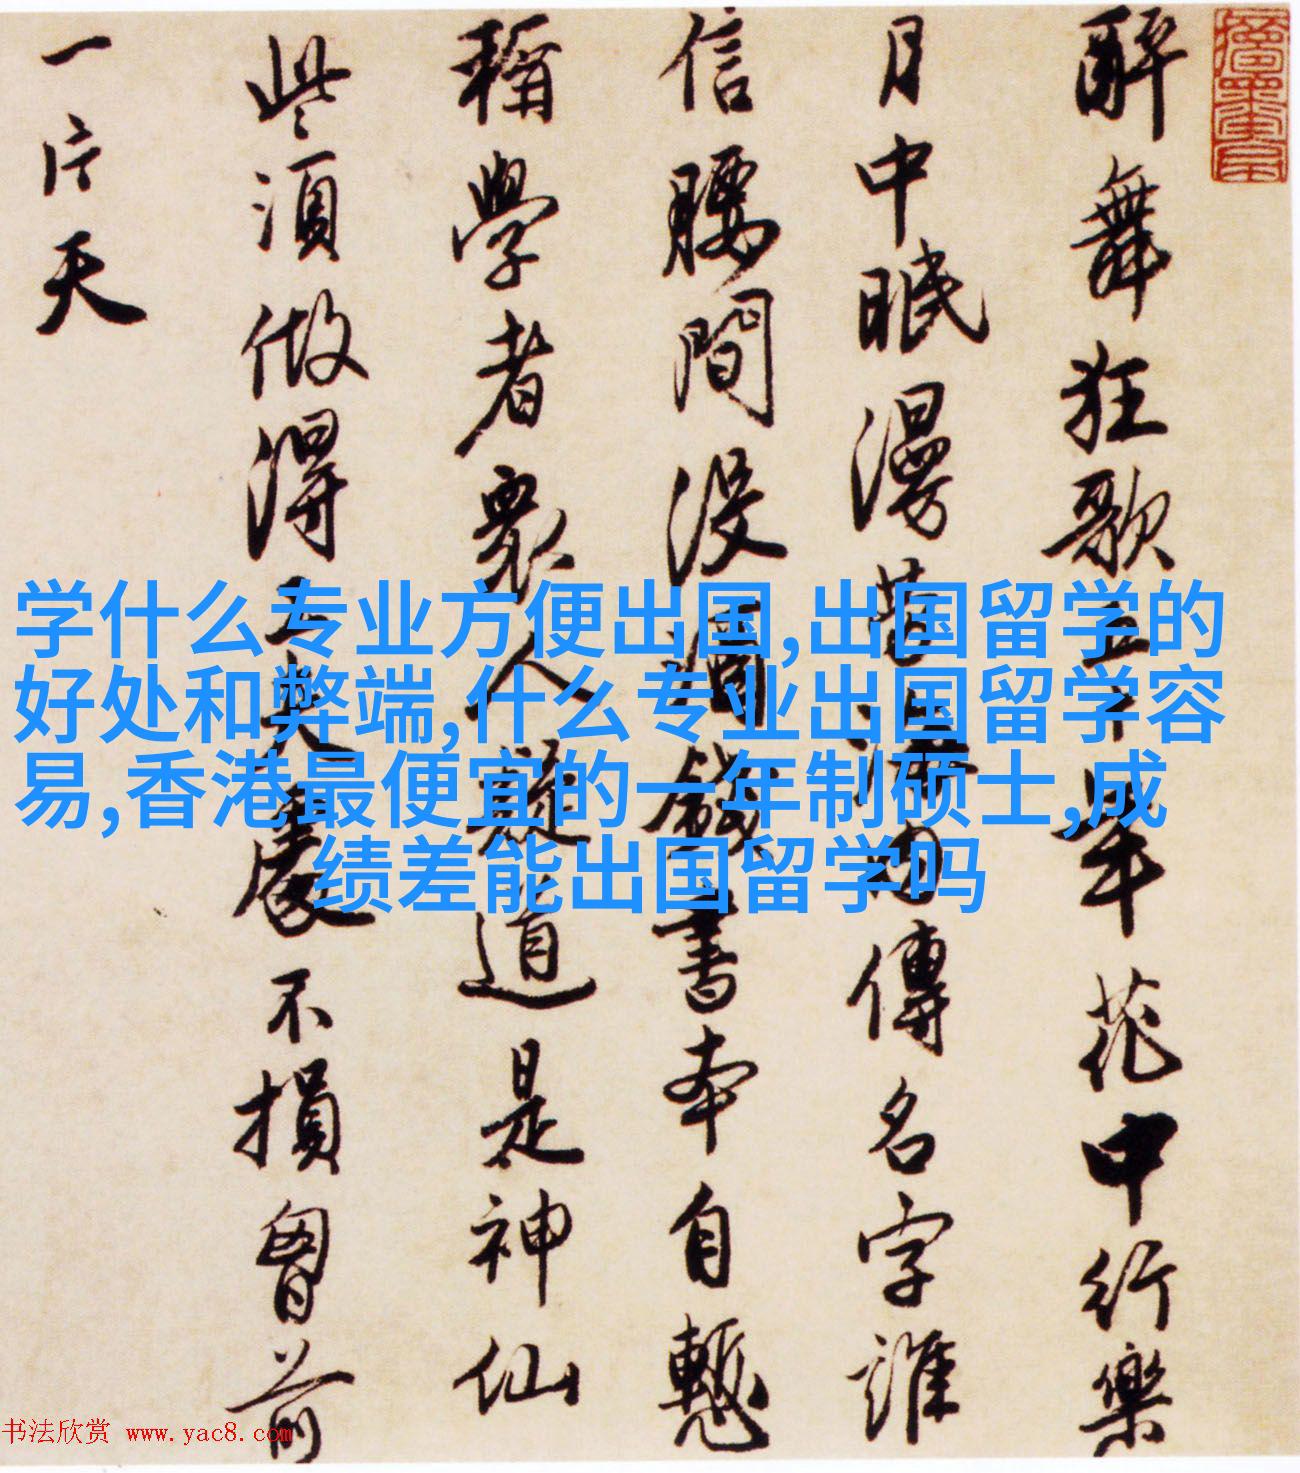 醉舞狂歌五十年花中行樂
月中眠漫勞海内傳名字誰
信腰間沒酒錢書本自慙
稱學者衆人疑道是神仙
些須做得工夫處不損胷前
一片天
学什么专业方便出国,出国留学的
好处和弊端,什么专业出国留学容
易,香港最便宜的一年制硕士,成
绩差能出国留学吗
书法欣赏 www.yac8.com